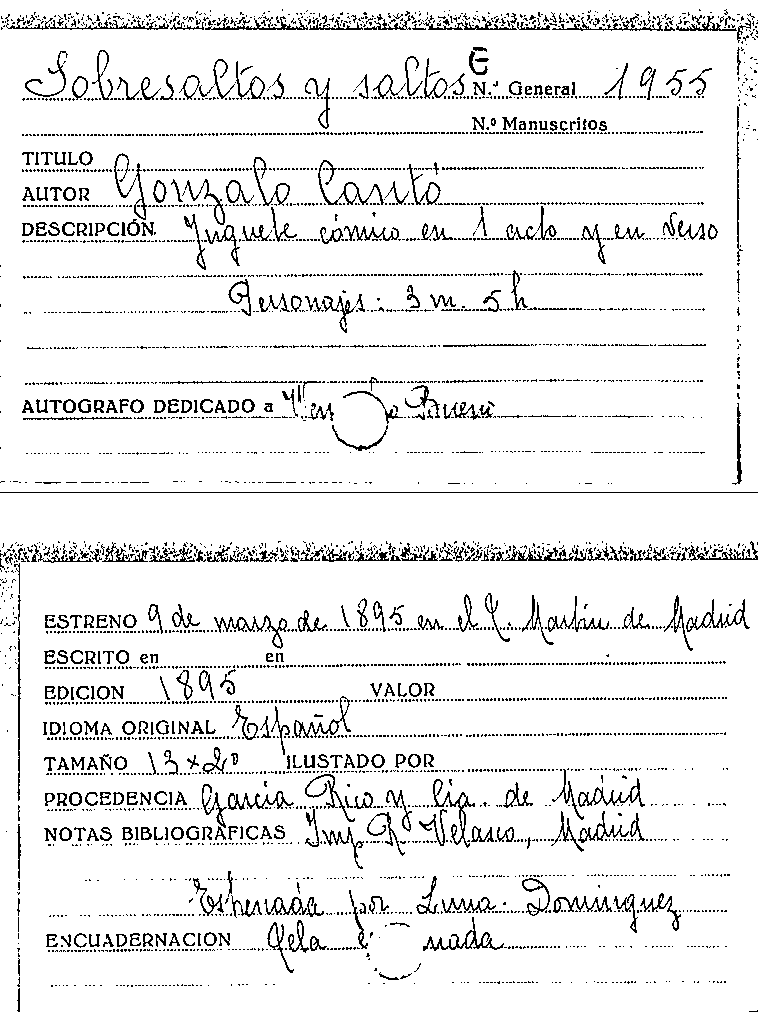 Sobresaltos y saltos E N.º General 1955
N.º Manuscritos
TITULO
AUTOR Gonzalo Cantó
DESCRIPCIÓN Juguete cómico en 1 acto y en verso
Personajes: 3 m. 5 h
AUTOGRAFO DEDICADO a Bueno
ESTRENO 9 de marzo de 1895 en el T. Martín de Madrid
ESCRITO en en
EDICION 1895 VALOR
IDIOMA ORIGINAL Español
TAMAÑO 13 x 20 ILUSTADO POR
PROCEDENCIA García Rico y Cía. de Madrid
NOTAS BIBLIOGRAFICAS Imp. R. Velasco, Madrid
Estrenada por Luna. Domínguez
ENCUADERNACION tela